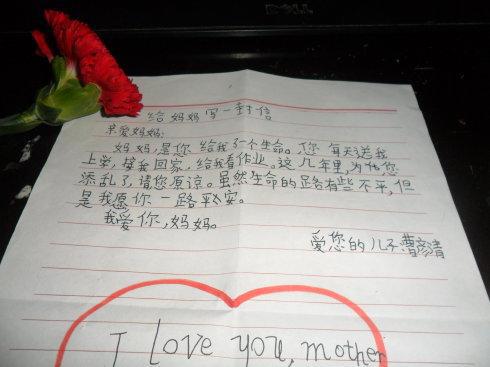 DELL
给妈妈写一封信
亲爱妈妈:
妈妈,是您给我了一个生命。您每天送我
上学,接我回家,给我看作业。这几年里,为您
添乱了,请您原谅。虽然生命的路有些不平,但
是我愿你一路平安。
我爱你,妈妈。
爱您的儿子:曹清
I love you, mother